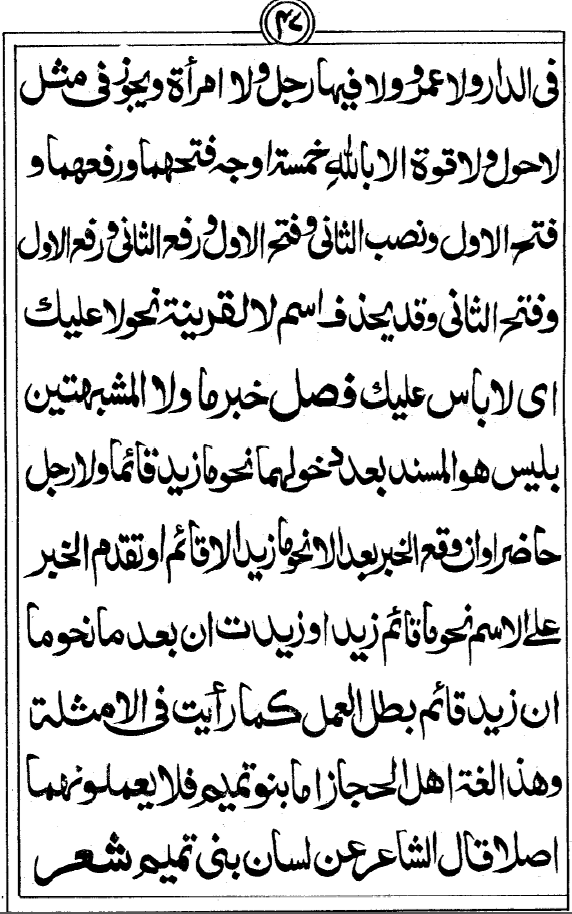 ۴۷
فى الدار ولا عمرو ولا فيها رجل ولا امرأة ويجوز فى مثل
لاحول ولا قوة الا باللهِ خمسة اوجه فتحهما ورفعهما و
فتح الاول ونصب الثانى وفتح الاول ورفع الثانى ورفع الاول
وفتح الثانى وقد يحذف اسم لا لقرينة نحو لا عليك
اى لا باس عليك فصل خبر ما ولا المشبهتين
بليس هو المسند بعد دخولهما نحو ما زيد قائما ولا رجل
حاضرا وان وقع الخبر بعد الا نحو ما زيد الا قائم او تقدم الخبر
على الاسم نحو ما قائم زيد او زيدت ان بعد ما نحو ما
ان زيد قائم بطل العمل كما رأيت فى الامثلة
وهذا لغة اهل الحجاز اما بنو تميم فلا يعملونهما
اصلا قال الشاعر عن لسان بنى تميم شعر